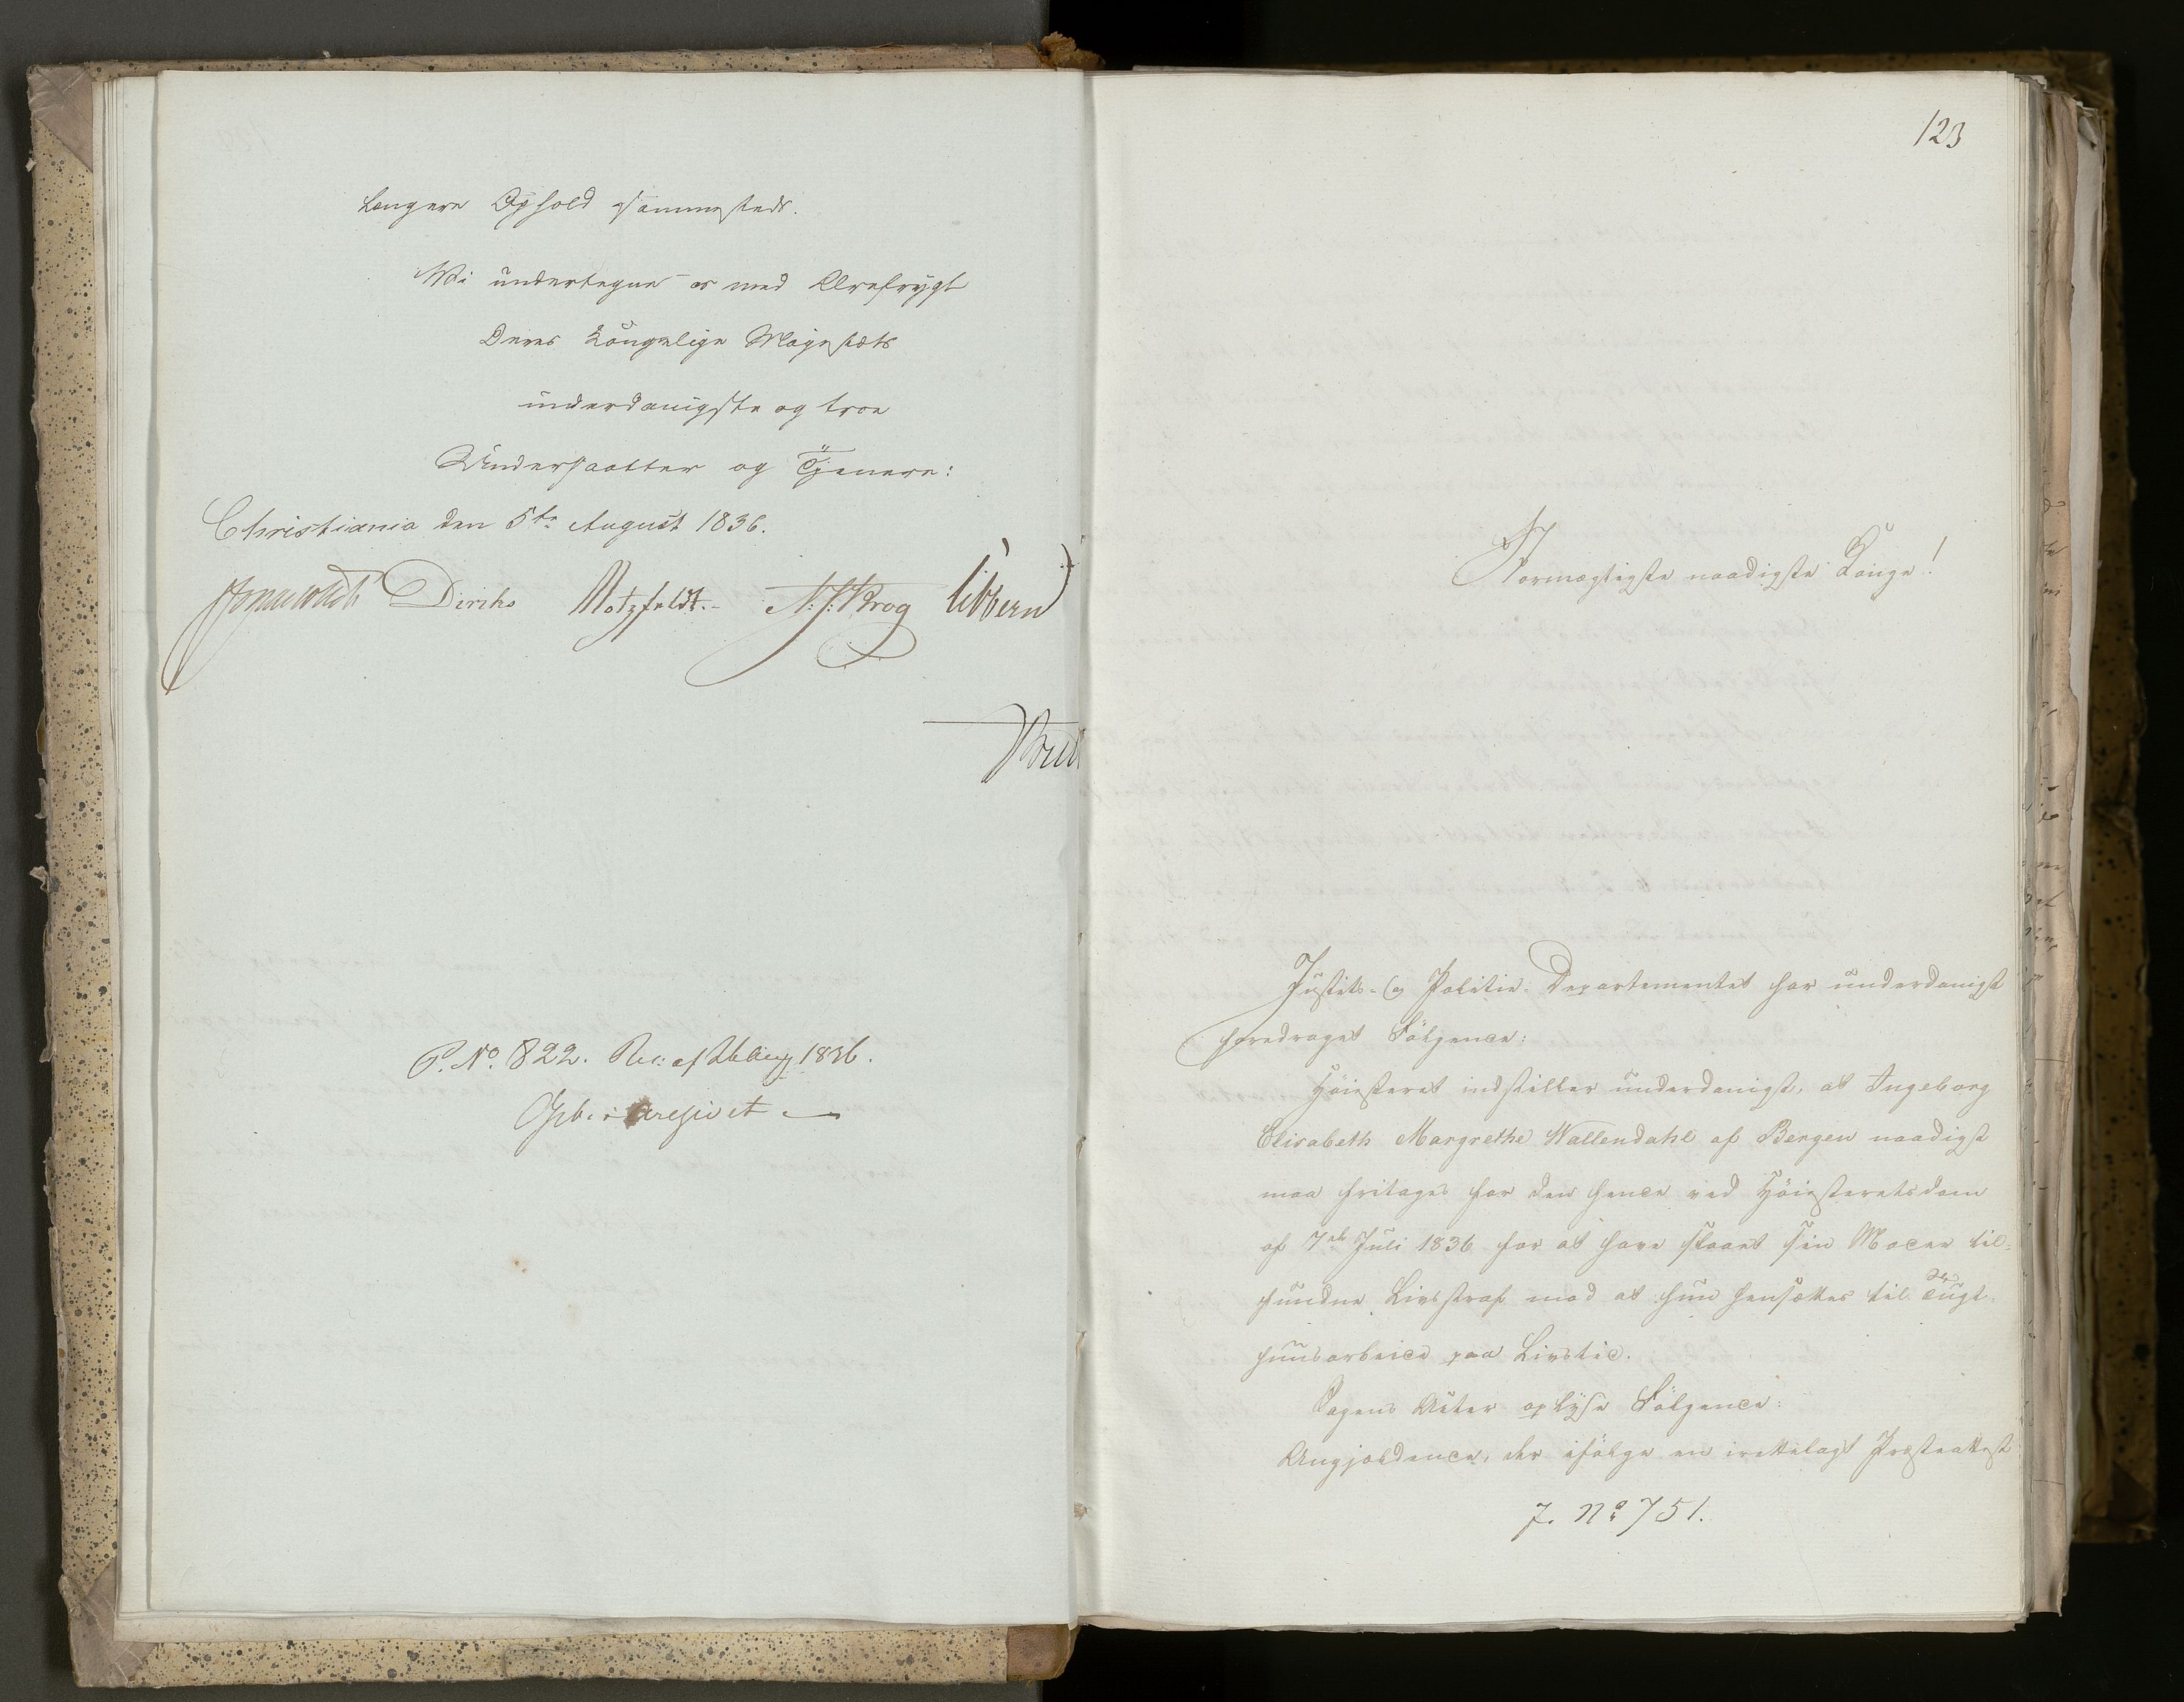 længere Ophold sammesteds.
Vi undertegne os med Ærefrygt
Deres Kongelige Majestæts
underdanigste og troe
Undersaatter og Tjenere:
Christiania den 5te August 1836.
Diriks Motzfeldt. N. J. Krog Vibe
P. No. 822. Res: af 26 Aug 1836.
Gjb. i Archivet
123
Stormægtigste naadigste Konge!
Justits- og Politie-Departementet har underdanigst
foredraget Følgende:
Høiesteret indstiller underdanigst, at Ingeborg
Elisabeth Margrethe Wallendahl af Bergen naadigst
maa fritages for den hende ved Høiesteretsdom
af 7de Juli 1836 for at have slaaet sin Moder til-
fundne Livsstraf mod at hun hensættes til Tugt-
huusarbeide paa Livstid.
Sagens Acter oplyse Følgende:
Angjældende, der ifølge en irettelagt Præsteattest
J. No 751.